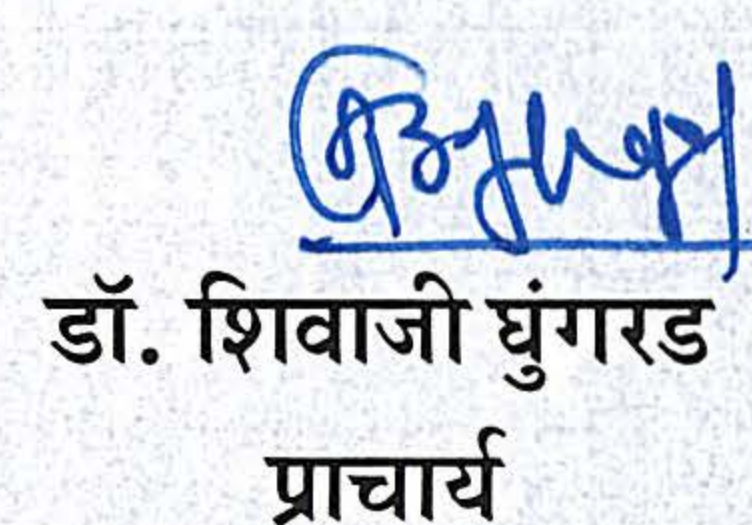 डॉ. शिवाजी घुंगरड
प्राचार्य